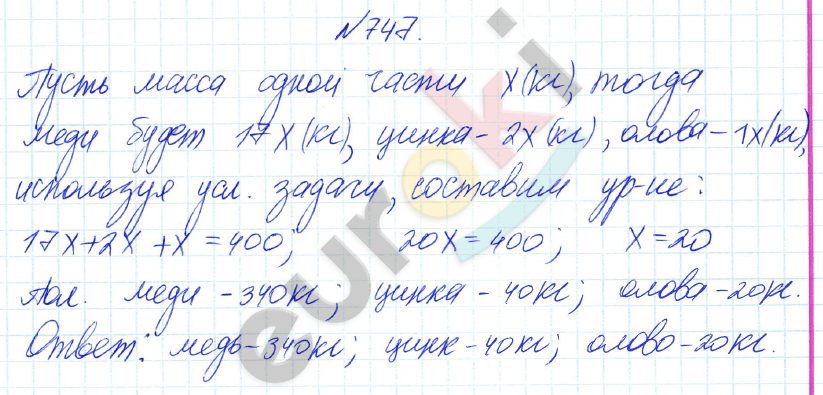 №747.
Пусть масса одной части x(кг), тогда
меди будет 17x(кг), цинка - 2x(кг), олова - 1x(кг),
используя усл. задачи, составим ур-ие:
17x+2x+x=400; 20x=400; x=20
пол. меди - 340кг; цинка - 40кг; олова - 20кг.
Ответ: медь - 340кг; цинк - 40кг; олово - 20кг.
euroki